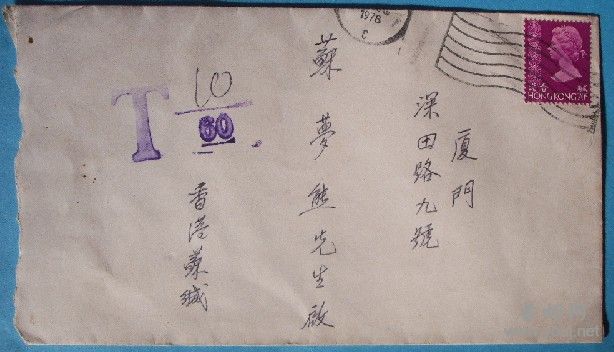 廈門
深田路九號
蘇夢熊先生啟
香港蘇緘
T 10
60
1978
HONG KONG